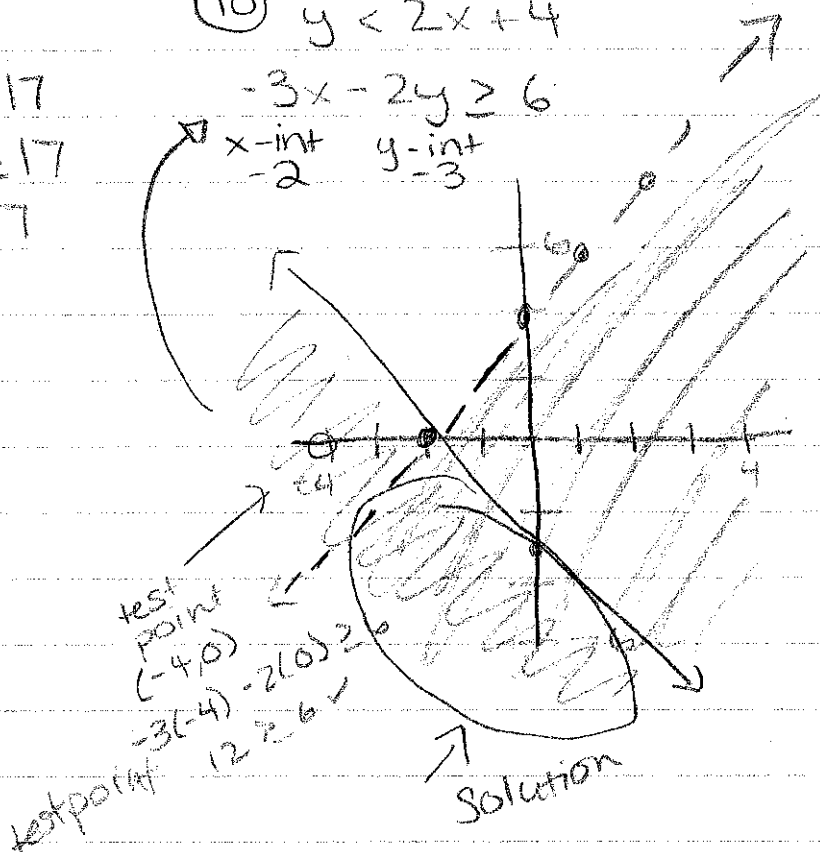 10 y < 2x + 4
17
-3x - 2y ≥ 6
=17
x-int y-int
-2 -3
7
6
-4 4
test
point
(-4,0)
-3(-4) -2(0) ≥ 6
12 ≥ 6 ✓
testpoint
Solution